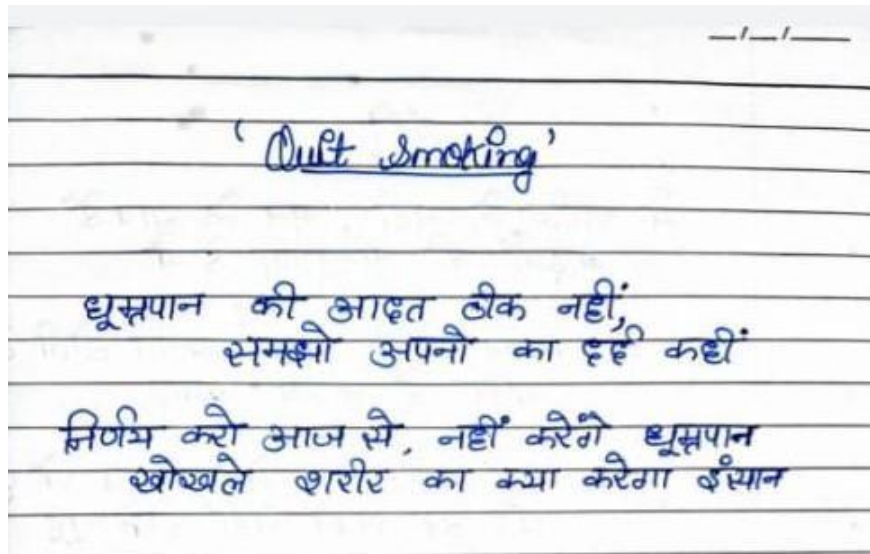 'Quit Smoking'
धूम्रपान की आदत ठीक नहीं,
समझो अपनो का दर्द कहीं
निर्णय करो आज से, नहीं करेंगे धूम्रपान
खोखले शरीर का क्या करेगा इंसान